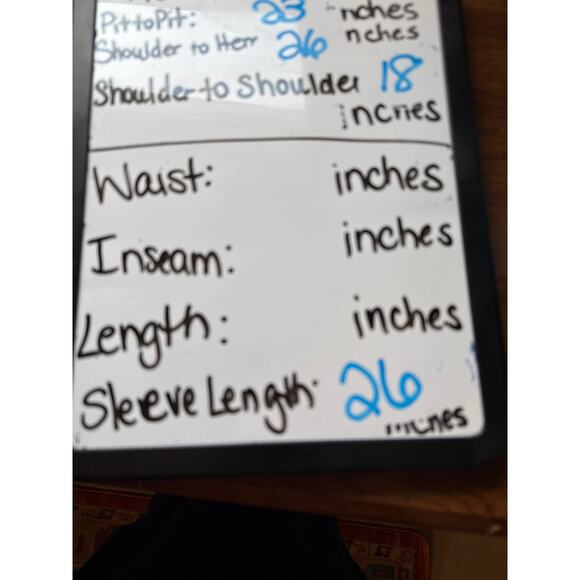 Pit to Pit: 23 inches
Shoulder to Hem 26 nches
Shoulder to Shoulder 18
incries
Waist: inches
Inseam: inches
Length: inches
Sleeve Length: 26
inches